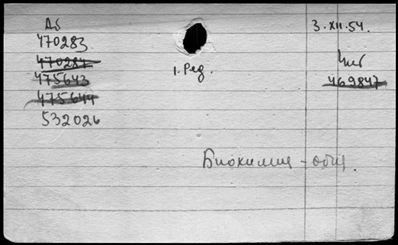 Аб
470283
470284
475643
475644
532026
1. Ред.
3.XII.54.
Чит
469847
Биохимия - общ.